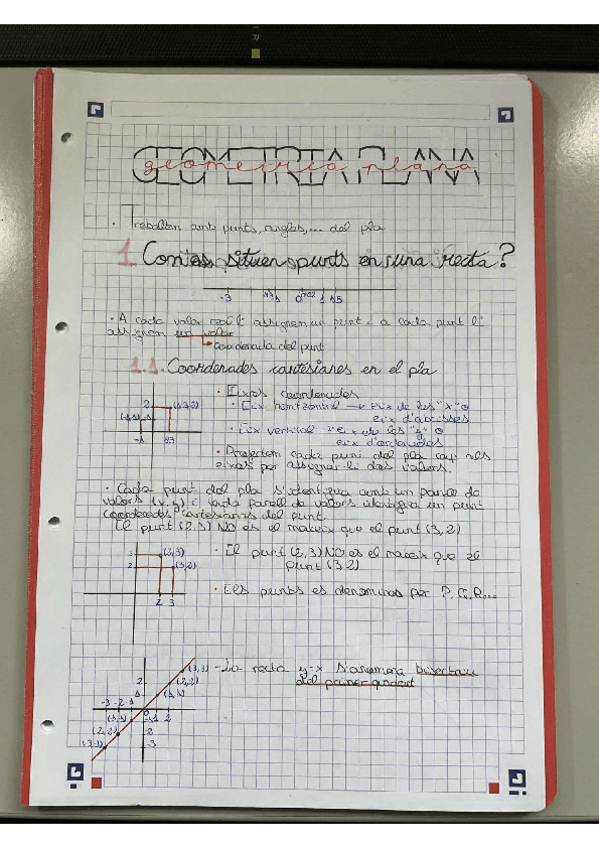 GEOMETRIA PLANA
geometria plana
· Treballem amb punts, angles,... del pla
1. Com es situen punts en una recta?
-3 0 1
· A cada valor real li assignem un punt i a cada punt li
assignem un valor
coordenada del punt
1.1. Coordenades cartesianes en el pla
· Eixos coordenades
· Eix horitzontal → eix de les "x" o
eix d'abscisses
· Eix vertical eix de les "y" o
eix d'ordenades
· Projectem cada punt del pla cap als
eixos per assignar-li dos valors.
2
· Cada punt del pla s'identifica amb un parell de
valors (x,y) i cada parell de valors identifica un punt
coordenades cartesianes del punt.
El punt (2,3) NO és el mateix que el punt (3,2)
3 (2,3)
2 (3,2)
2 3
· El punt (2,3) NO és el mateix que el
punt (3,2)
· Els punts es denominen per P, Q, R...
(3,3) - La recta y=x s'anomena bisectriu
del primer quadrant
(2,2)
2
-3 -2
2